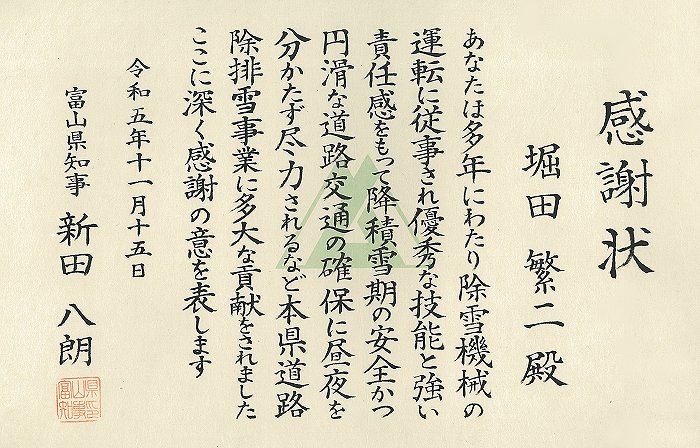 感謝状
堀田 繁二 殿
あなたは多年にわたり除雪機械の
運転に従事され優秀な技能と強い
責任感をもって降積雪期の安全かつ
円滑な道路交通の確保に昼夜を
分かたず尽力されるなど本県道路
除排雪事業に多大な貢献をされました
ここに深く感謝の意を表します
令和五年十一月十五日
富山県知事 新田 八朗